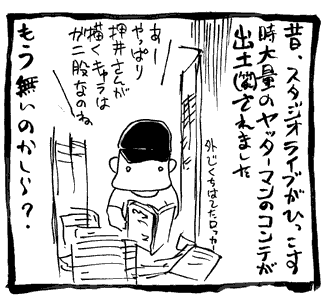 昔、スタジオライブがひっこす
時大量のヤッターマンのコンテが
出土(笑)されました
外じくちはてたロッカー
あー
やっぱり
押井さんが
描くキャラは
ガニ股なのね
もう無いのかし〜?